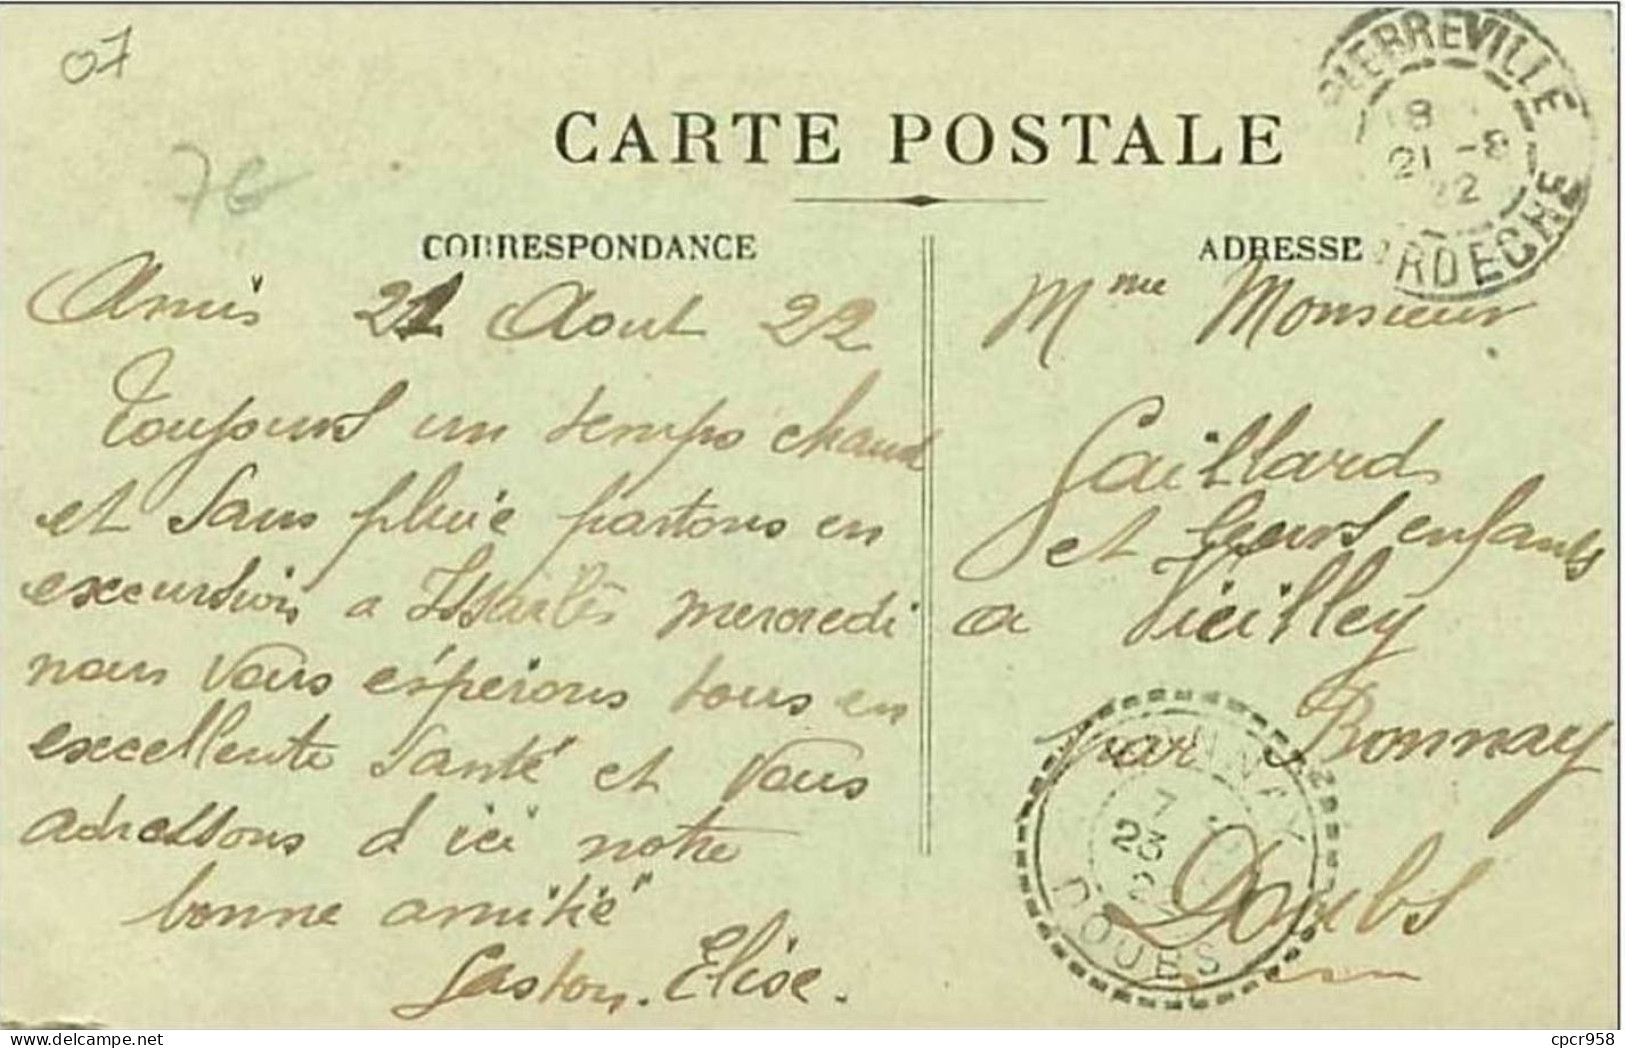 07
7€
CARTE POSTALE
PIERREVILLE
18
21 -8
22
ARDECHE
CORRESPONDANCE
Amis 21 Aout 22
Toujours un temps chaud
et sans pluie partons en
excursion a Issarlès mercredi
nous vous espérons tous en
excellente santé et vous
adressons d'ici notre
bonne amitié
Gaston. Elise.
ADRESSE
Mme Monsieur
Gaillard
et leurs enfants
a Vieilley
par Bonnay
Doubs
BONNAY
7
23
DOUBS
cpcr958